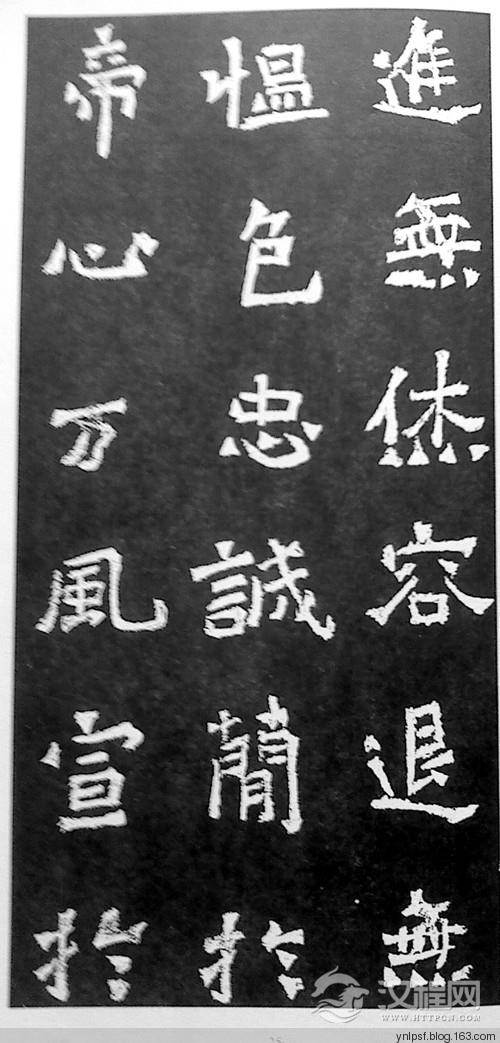 進無烋容退無
愠色忠誠簡扵
帝心万風宣扵
汉程网
WWW.HTTPCN.COM
ynlpsf.blog.163.com